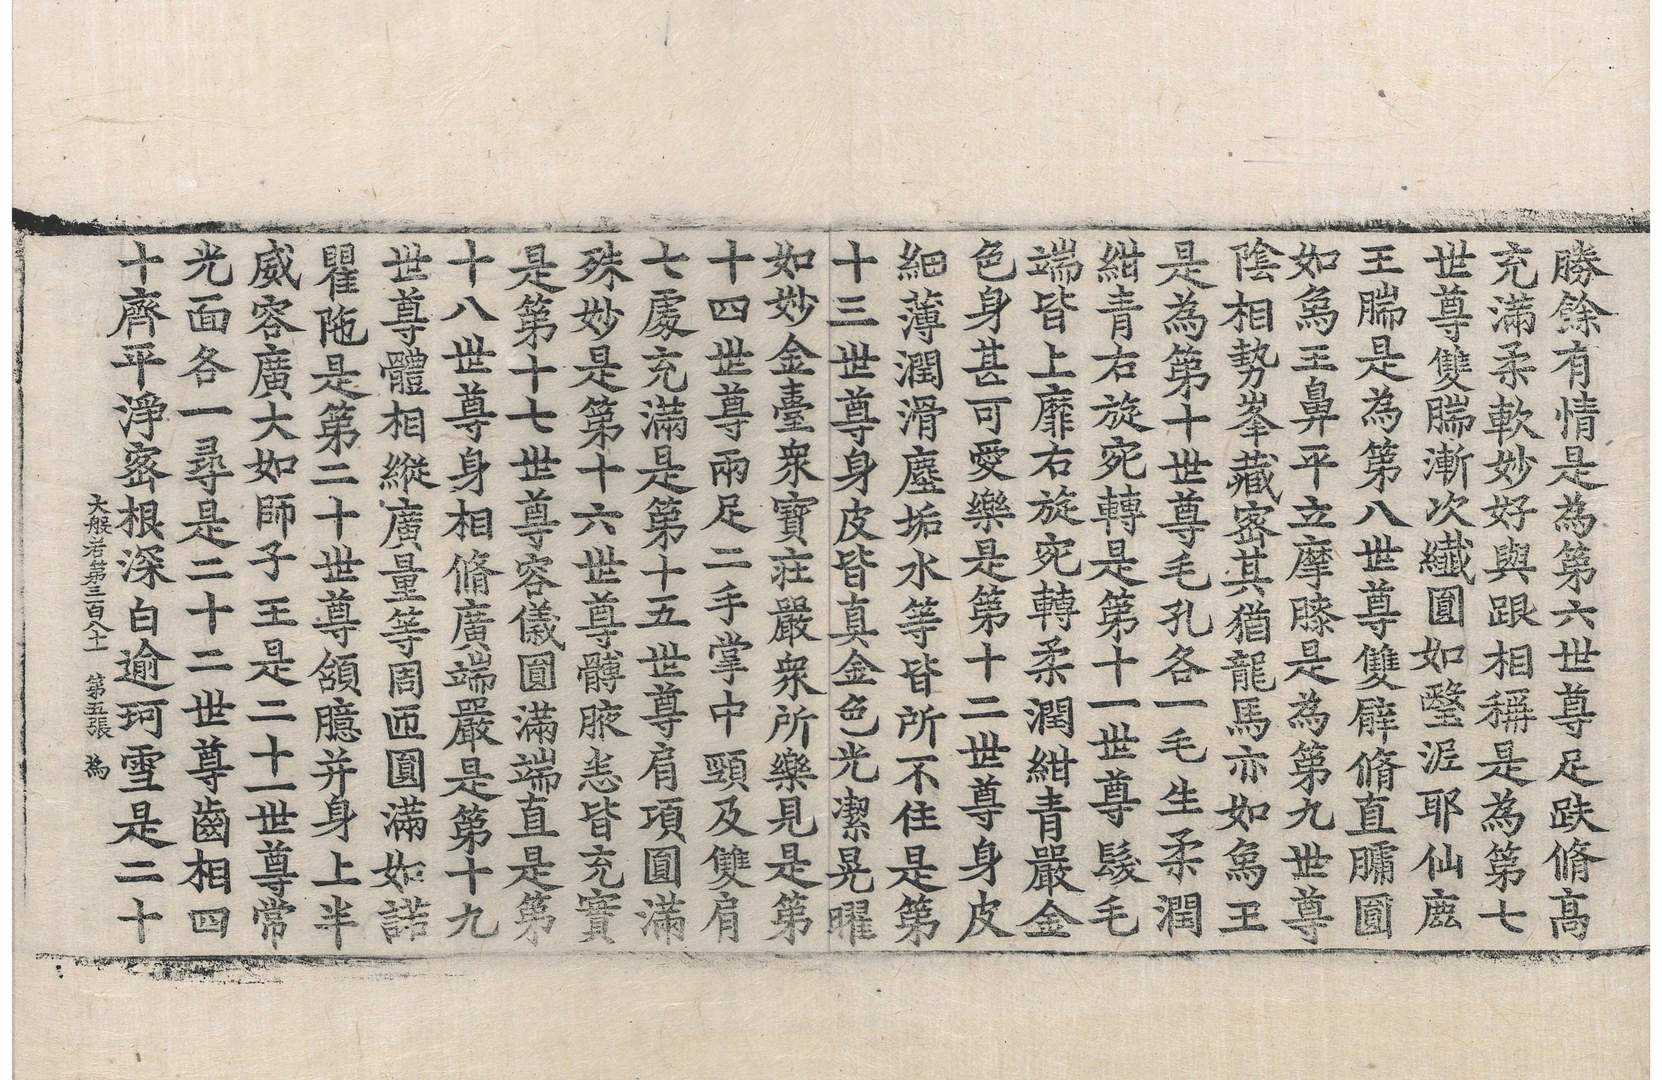 勝餘有情是為第六世尊足趺脩高
充滿柔軟妙好與跟相稱是為第七
世尊雙腨漸次纖圓如瑿泥耶仙鹿
王腨是為第八世尊雙臂脩直𦟛圓
如象王鼻平立摩膝是為第九世尊
陰相勢峯藏密其猶龍馬亦如象王
是為第十世尊毛孔各一毛生柔潤
紺青右旋宛轉是第十一世尊髮毛
端皆上靡右旋宛轉柔潤紺青嚴金
色身甚可愛樂是第十二世尊身皮
細薄潤滑塵垢水等皆所不住是第
十三世尊身皮皆真金色光潔晃曜
如妙金臺衆寶莊嚴衆所樂見是第
十四世尊兩足二手掌中頸及雙肩
七處充滿是第十五世尊肩項圓滿
殊妙是第十六世尊髆腋悉皆充實
是第十七世尊容儀圓滿端直是第
十八世尊身相脩廣端嚴是第十九
世尊體相縱廣量等周匝圓滿如諾
瞿陁是第二十世尊頷臆并身上半
威容廣大如師子王是二十一世尊常
光面各一尋是二十二世尊齒相四
十齊平淨密根深白逾珂雪是二十
大般若第三百八十一　第五張　為